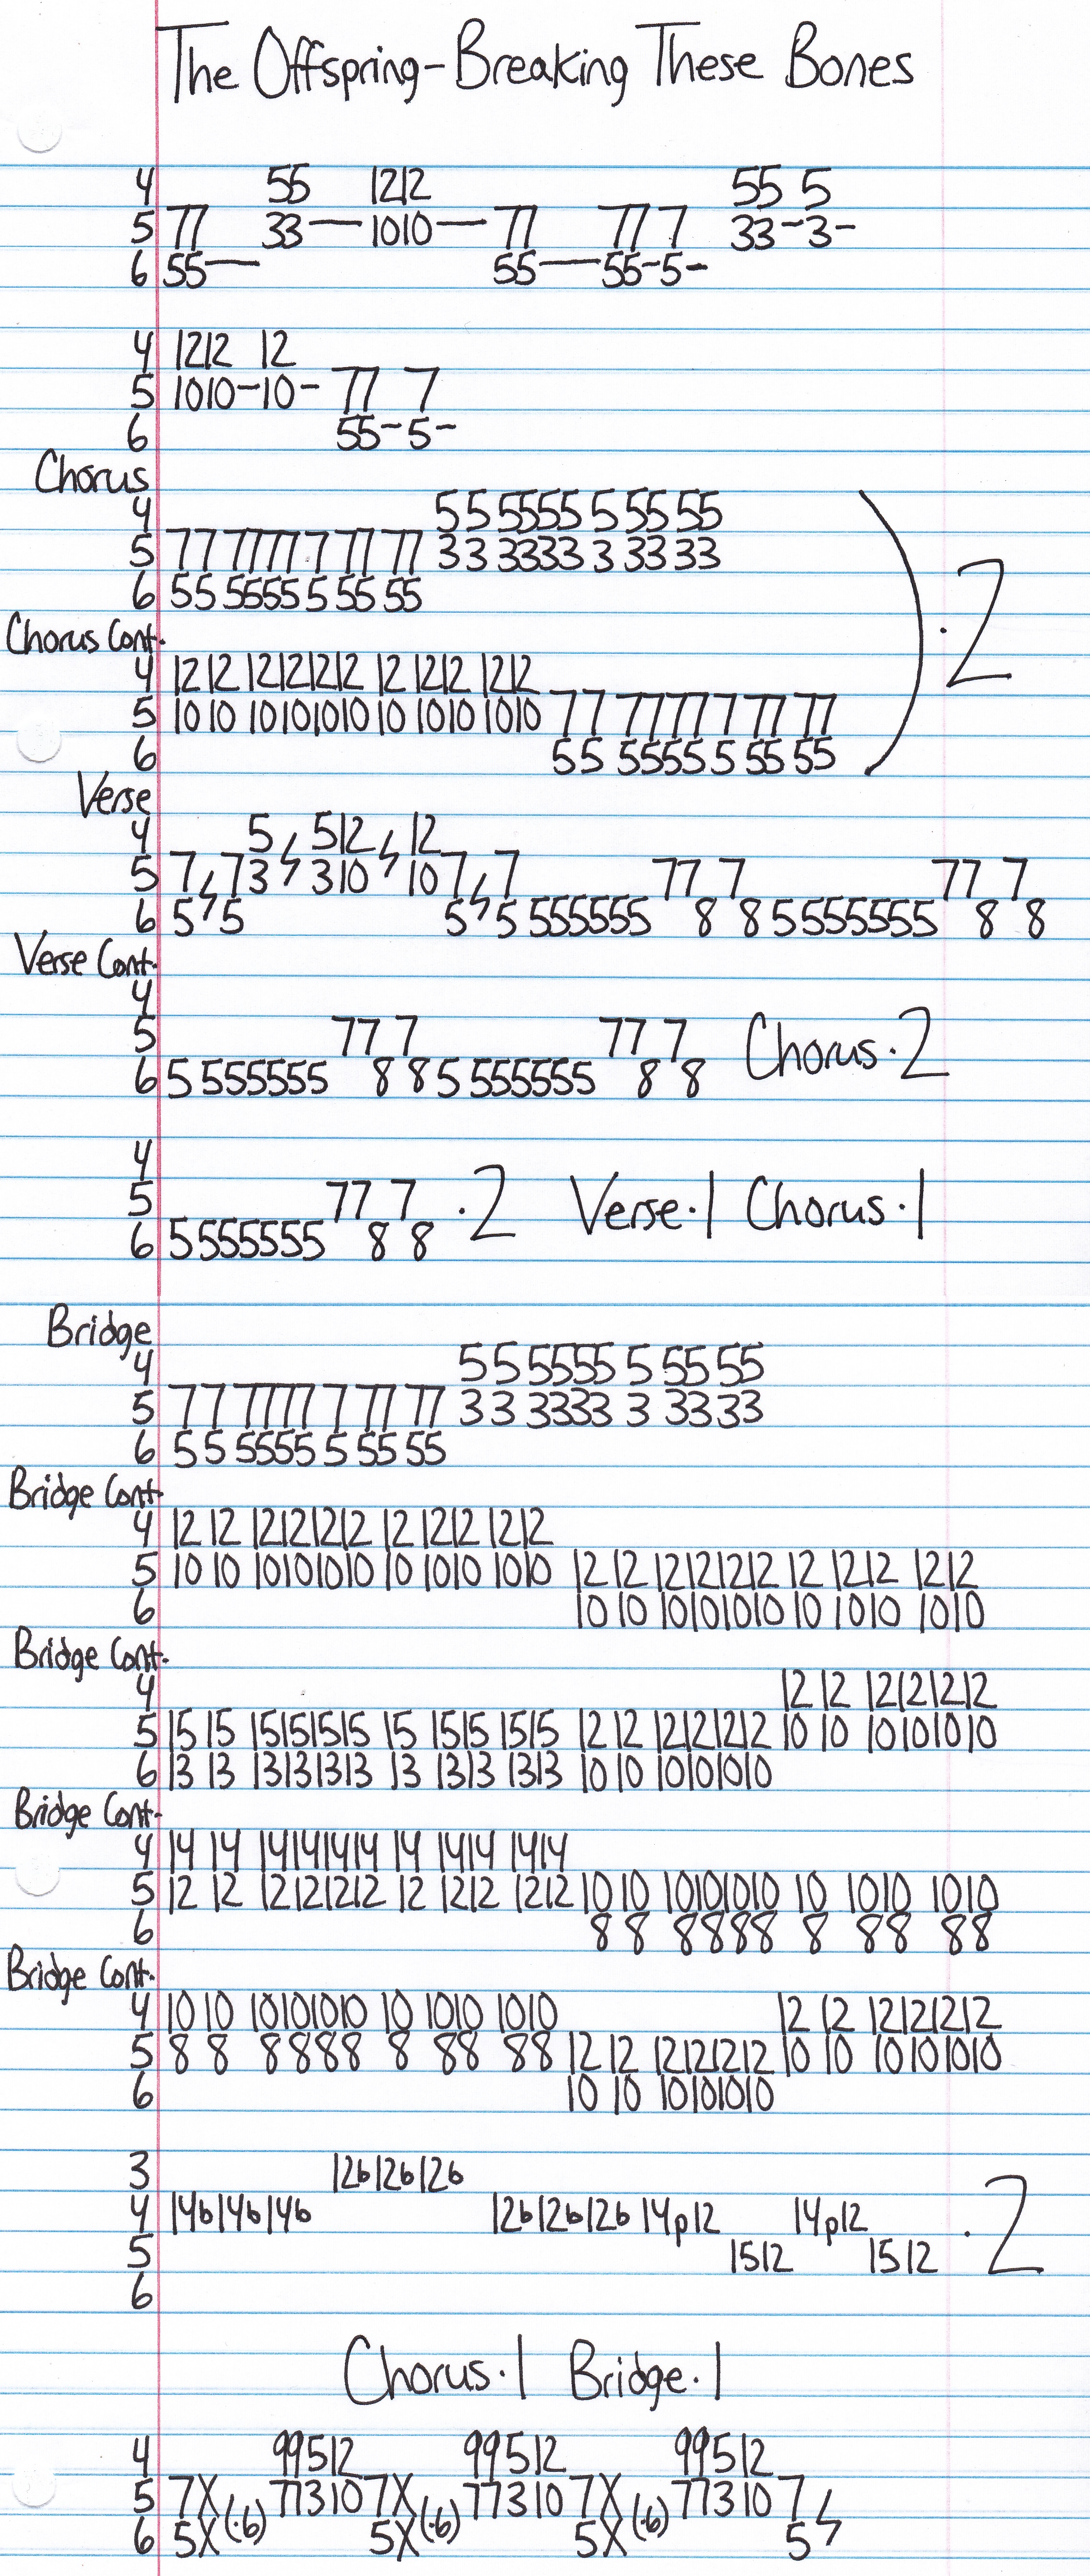 The Offspring-Breaking These Bones
4 55 1212 55 5
5 77 33— 1010— 77 77 7 33-3-
6 55— 55—55-5-
4 1212 12
5 1010-10- 77 7
6 55-5-
Chorus
4 5 5 5555 5 55 55
5 7 7 7777 7 77 77 3 3 3333 3 33 33
6 5 5 5555 5 55 55
·2
Chorus Cont.
4 12 12 12121212 12 1212 1212
5 10 10 10101010 10 1010 1010 7 7 7777 7 77 77
6 5 5 5555 5 55 55
Verse
4 5 512 12
5 7 73 310 107 7 77 7 77 7
6 5 5 5 5 555555 8 8 5 5555555 8 8
Verse Cont.
4
5 77 7 77 7
6 5 555555 8 8 5 555555 8 8 Chorus·2
4
5 77 7 ·2 Verse·1 Chorus·1
6 5 555555 8 8
Bridge
4 5 5 5555 5 55 55
5 7 7 7777 7 77 77 3 3 3333 3 33 33
6 5 5 5555 5 55 55
Bridge Cont.
4 12 12 12121212 12 1212 1212
5 10 10 10101010 10 1010 1010 12 12 12121212 12 1212 1212
6 10 10 10101010 10 1010 1010
Bridge Cont.
4 12 12 12121212
5 15 15 15151515 15 1515 1515 12 12 12121212 10 10 10101010
6 13 13 13131313 13 1313 1313 10 10 10101010
Bridge Cont.
4 14 14 14141414 14 1414 1414
5 12 12 12121212 12 1212 1212 10 10 10101010 10 1010 1010
6 8 8 8888 8 88 88
Bridge Cont.
4 10 10 10101010 10 1010 1010 12 12 12121212
5 8 8 8888 8 88 88 12 12 12121212 10 10 10101010
6 10 10 10101010
3 12b12b12b
4 14b14b14b 12b12b12b 14p12 14p12 ·2
5 1512 1512
6
Chorus·1 Bridge·1
4 99512 99512 99512
5 7X 77310 7X 77310 7X 77310 7
6 5X(·6) 5X(·6) 5X(·6) 5